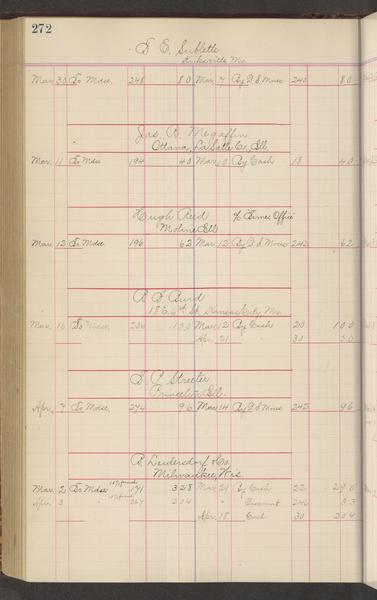 272
S. E. Sublette
Kirksville Mo.
Mar. 30 To Mdse. 248 80 Mar. 7 By P. S. Morse 240 80
Jas. R. Megaffin
Ottawa, La Salle Co., Ill.
Mar. 11 To Mdse 194 40 Mar. 10 By Cash 18 40
Hugh Reid c/o Times Office
Moline Ill
Mar. 12 To Mdse. 196 62 Mar. 12 By P. S. Morse 242 62
Kansas City, Mo.
Mar. 16 To Mdse. 206 100 Mar. 12 By Cash 20 100
Apr. 21 " 30 50
S. P. Streeter
Princeton Ill.
Apr. 7 To Mdse. 274 96 Mar. 14 By P. S. Morse 242 96
B. Leidersdorf & Co.
Milwaukee, Wis.
Mar. 2 To Mdse 171 328 Mar. 21 By Cash 22
Apr. 3 " 267 204 " Discount 246
Apr. 18 Cash 30 204